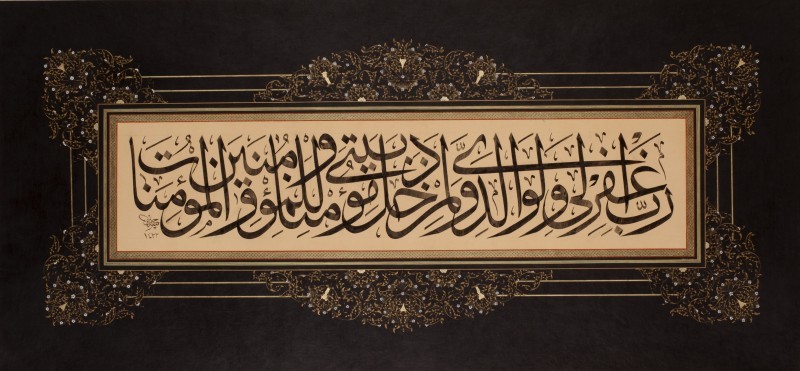 رَبِّ اغْفِرْ لِي وَلِوَالِدَيَّ وَلِمَنْ دَخَلَ بَيْتِيَ مُؤْمِنًا وَلِلْمُؤْمِنِينَ وَالْمُؤْمِنَاتِ